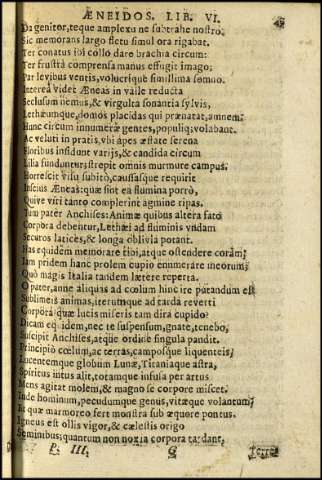 ÆNEIDOS. LIB. VI.
Da genitor, teque amplexu ne subtrahe nostro.
Sic memorans largo fletu simul ora rigabat.
Ter conatus ibi collo dare brachia circum:
Ter frustrà comprensa manus effugit imago;
Par levibus ventis, volucrique simillima somno.
Interea videt Æneas in valle reducta
Seclusum nemus, & virgulta sonantia sylvis,
Lethæumque, domos placidas qui prænatat, amnem.
Hunc circum innumeræ gentes, populiq; volabant.
Ac veluti in pratis, vbi apes æstate serena
Floribus insidunt varijs, & candida circum
Lilia funduntur; strepit omnis murmure campus.
Horrescit visu subitò, caussasque requirit
Inscius Æneas: quæ sint ea flumina porrò,
Quive viri tanto complerint agmine ripas.
Tum pater Anchises: Animæ quibus altera fato
Corpora debentur, Lethæi ad fluminis vndam
Securos latices, & longa oblivia potant.
Has equidem memorare tibi, atque ostendere coràm;
Iam pridem hanc prolem cupio enumerare meorum;
Quò magis Italia tandem lætere reperta.
O pater, anne aliquas ad cœlum hinc ire putandum est
Sublimeis animas, iterumque ad tarda reverti
Corpora? quæ lucis miseris tam dira cupido?
Dicam equidem, nec te suspensum, gnate, tenebo,
Suscipit Anchises, atque ordine singula pandit.
Principiò cœlum, ac terras, camposque liquenteis,
Lucentemque globum Lunæ, Titaniaque astra,
Spiritus intus alit, totamque infusa per artus
Mens agitat molem, & magno se corpore miscet.
Inde hominum, pecudumque genus, vitæque volantum,
Et quæ marmoreo fert monstra sub æquore pontus.
Igneus est ollis vigor, & cælestis origo
Seminibus; quantum non noxia corpora tardant,
P. III. G Terre-